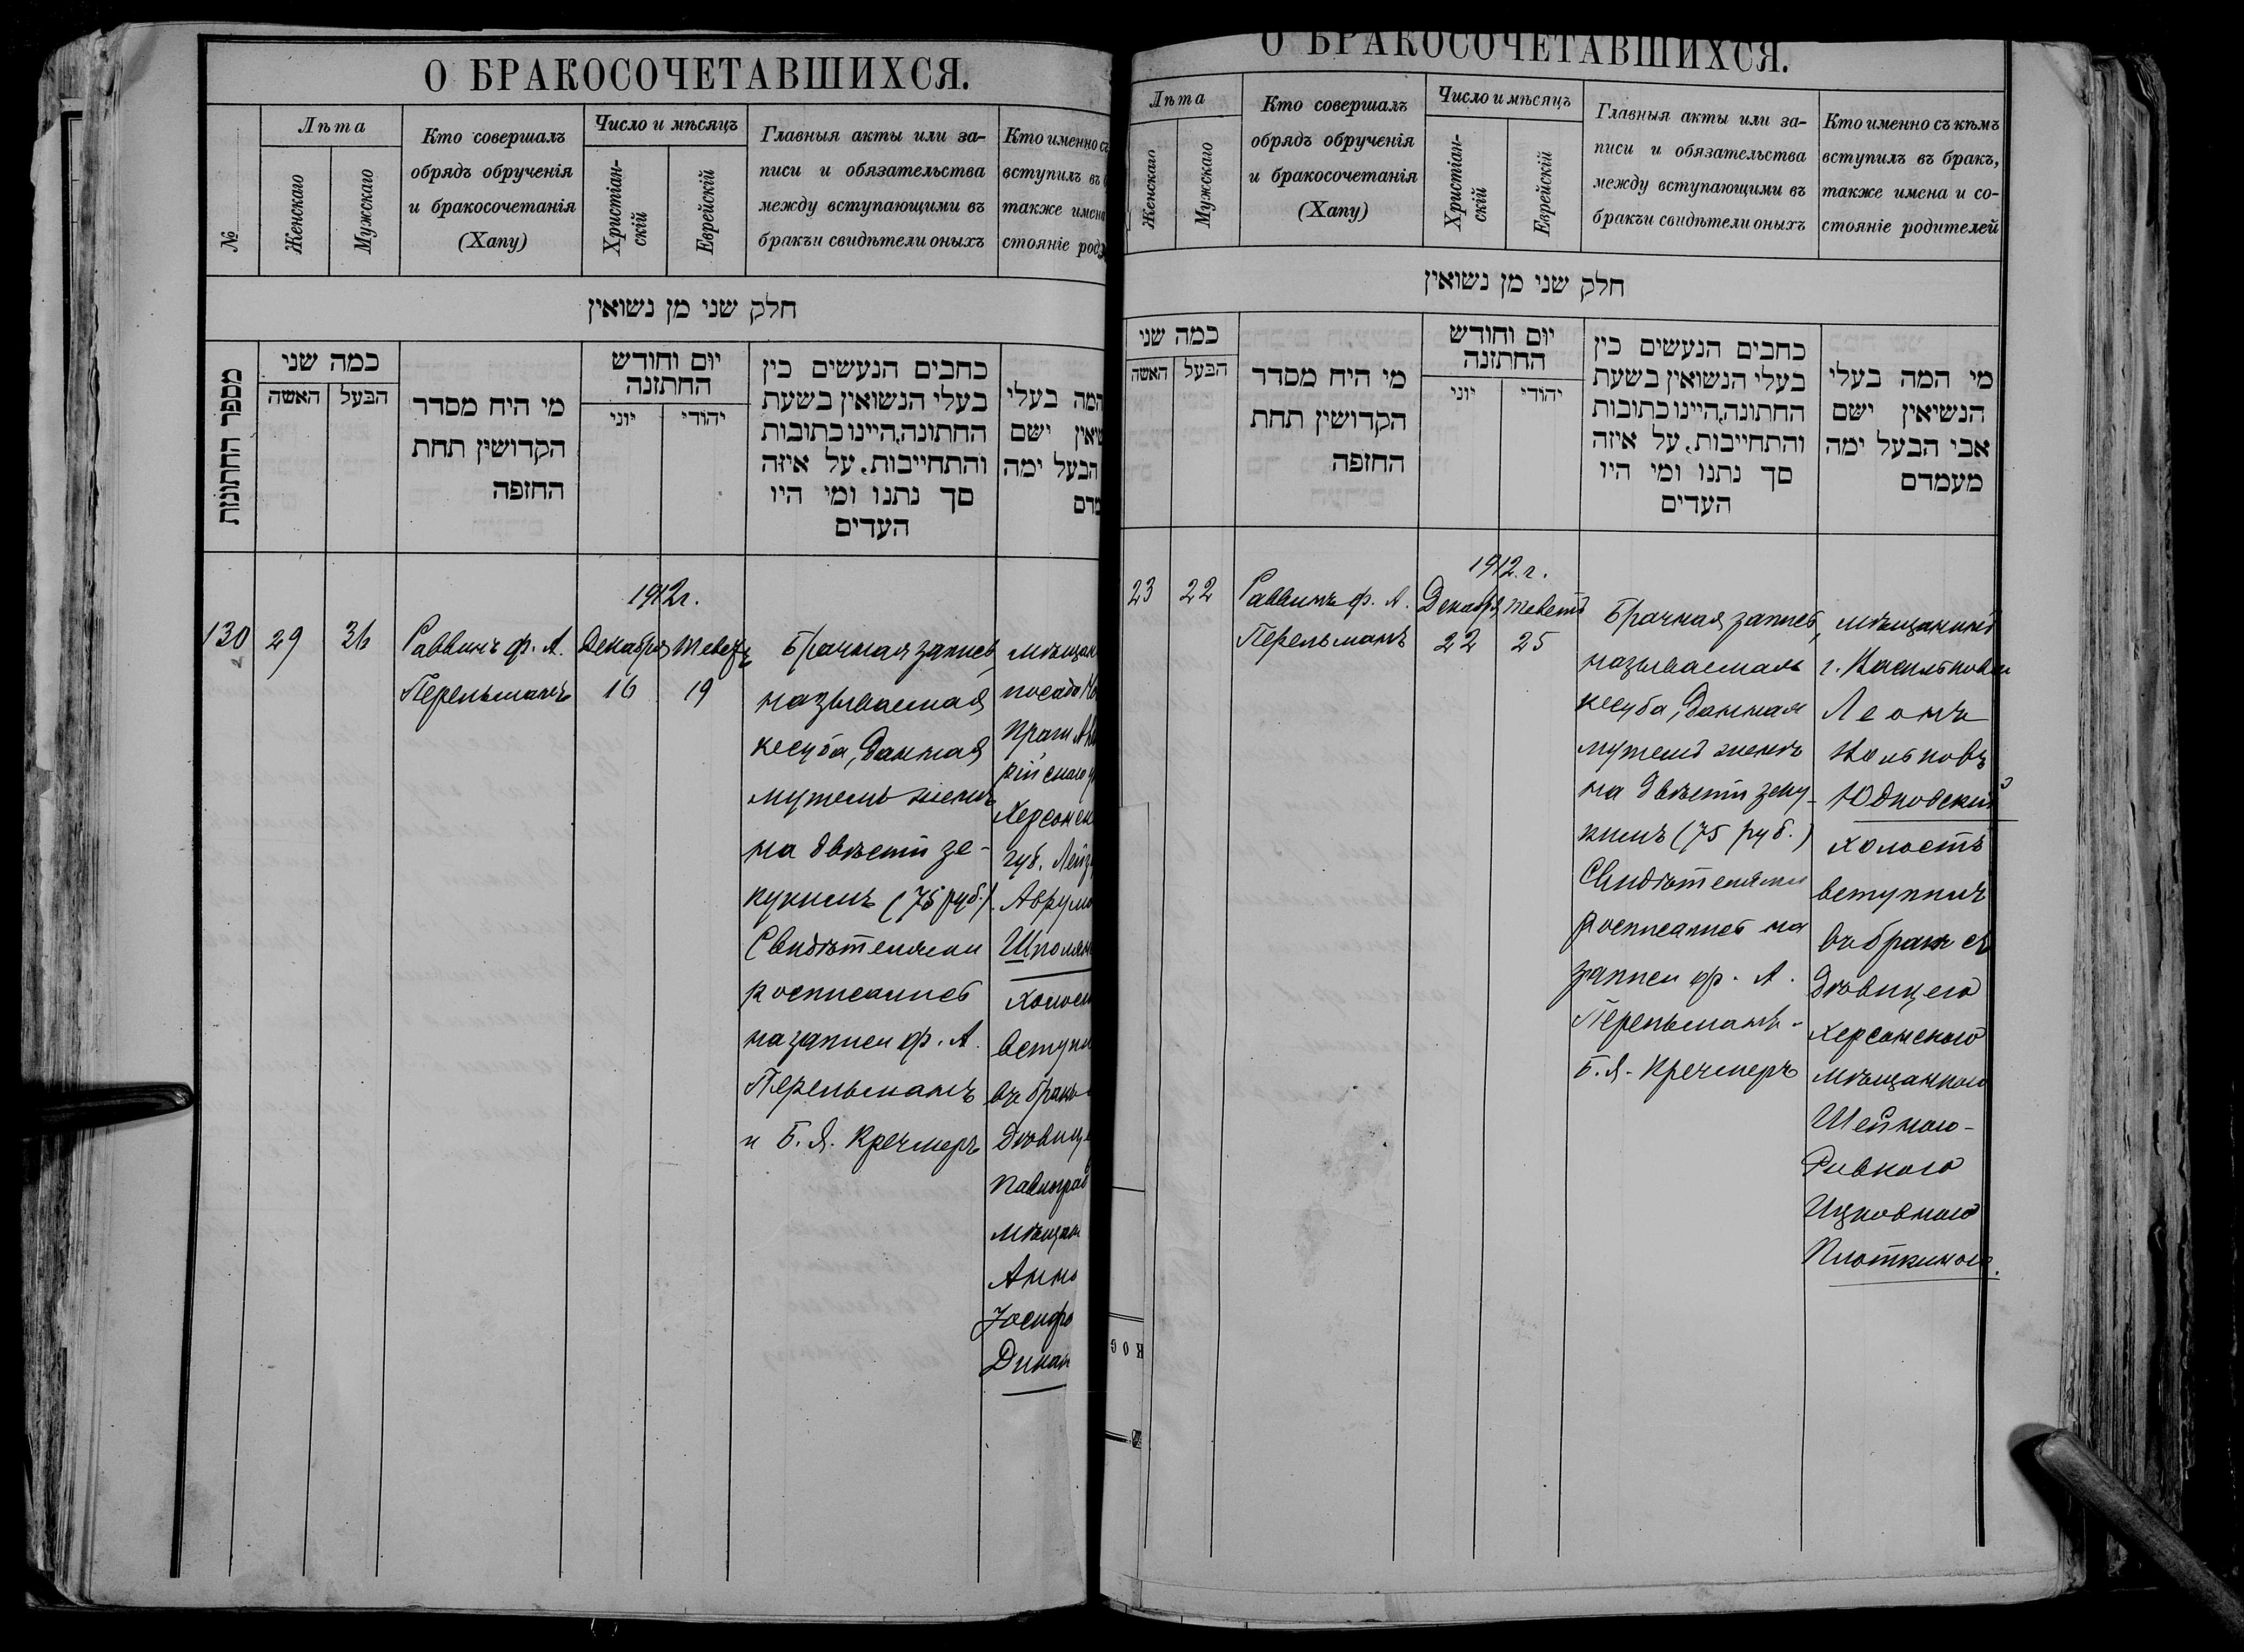 О БРАКОСОЧЕТАВШИХСЯ.
№
Лѣта
Женскаго
Мужскаго
Кто совершалъ
обрядъ обрученія
и бракосочетанія
(Хапу)
Число и мѣсяцъ
Христіан-
скій
Еврейскій
Главныя акты или за-
писи и обязательства
между вступающими въ
бракъи свидѣтели оныхъ
Кто именно съ
вступилъ въ
также имена
стояніе род
חלק שני מן נשואין
מספר החתונות
כמה שני
האשה
הבעל
מי היח מסדר
הקדושין תחת
החופה
יום וחודש
החתונה
יוני
יהודי
כחבים הנעשים כין
בעלי הנשואין בשעת
החתונה,היינו כתובות
והתחייבות, על איזה
סך נתנו ומי היו
העדים
המה בעלי
שיאין ישם
הבעל ימה
מדם
1912 г.
130
29
36
Раввинъ Ф. А.
Перельманъ
Декабря
16
Теветъ
19
Брачная запись,
называемая
кесуба, данная
мужемъ женѣ
на двѣсти зе-
кукимъ (75 руб.).
Свидѣтелями
росписались
на записи Ф. А.
Перельманъ
и Б. Я. Кречмеръ
мѣщан
посада Но
Праги
рійскаго у
Херсонск
губ. Лейз
Аврумо
Шполян
холост
вступи
въ бракъ
дѣвице
Павлоград
мѣщан
Анно
Іосифо
Дикан
О БРАКОСОЧЕТАВШИХСЯ.
Лѣта
Женскаго
Мужскаго
Кто совершалъ
обрядъ обрученія
и бракосочетанія
(Хапу)
Число и мѣсяцъ
Христіан-
скій
Еврейскій
Главныя акты или за-
писи и обязательства
между вступающими въ
бракъи свидѣтели оныхъ
Кто именно съ кѣмъ
вступилъ въ бракъ,
также имена и со-
стояніе родителей
חלק שני מן נשואין
כמה שני
האשה
הבעל
מי היח מסדר
הקדושין תחת
החופה
יום וחודש
החתונה
יוני
יהודי
כחבים הנעשים כין
בעלי הנשואין בשעת
החתונה,היינו כתובות
והתחייבות, על איזה
סך נתנו ומי היו
העדים
מי המה בעלי
הנשיאין ישם
אבי הבעל ימה
מעמדם
1912. г.
23
22
Раввинъ Ф. А.
Перельманъ
Декабря
22
Теветъ
25
Брачная запись,
называемая
кесуба, данная
мужемъ женѣ
на двѣсти зеку-
кимъ (75 руб.)
Свидѣтелями
росписались на
записи Ф. А.
Перельманъ
Б. Я. Кречмеръ
мѣщанинъ
г. Василькова
Леонъ
Юдковскій
холостъ
вступилъ
въ бракъ съ
дѣвицею
Херсонскою
мѣщанкою
Шейною-
Ривкою
Ицковною
Плоткиною.